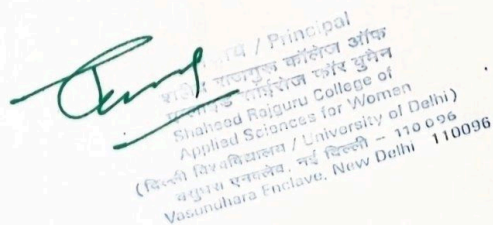 / Principal
राजगुरू कॉलेज ऑफ
साईंसेज फॉर वुमेन
Shaheed Rajguru College of
Applied Sciences for Women
(दिल्ली विश्वविद्यालय / University of Delhi)
वसुन्धरा एनक्लेव, नई दिल्ली – 110096
Vasundhara Enclave, New Delhi 110096